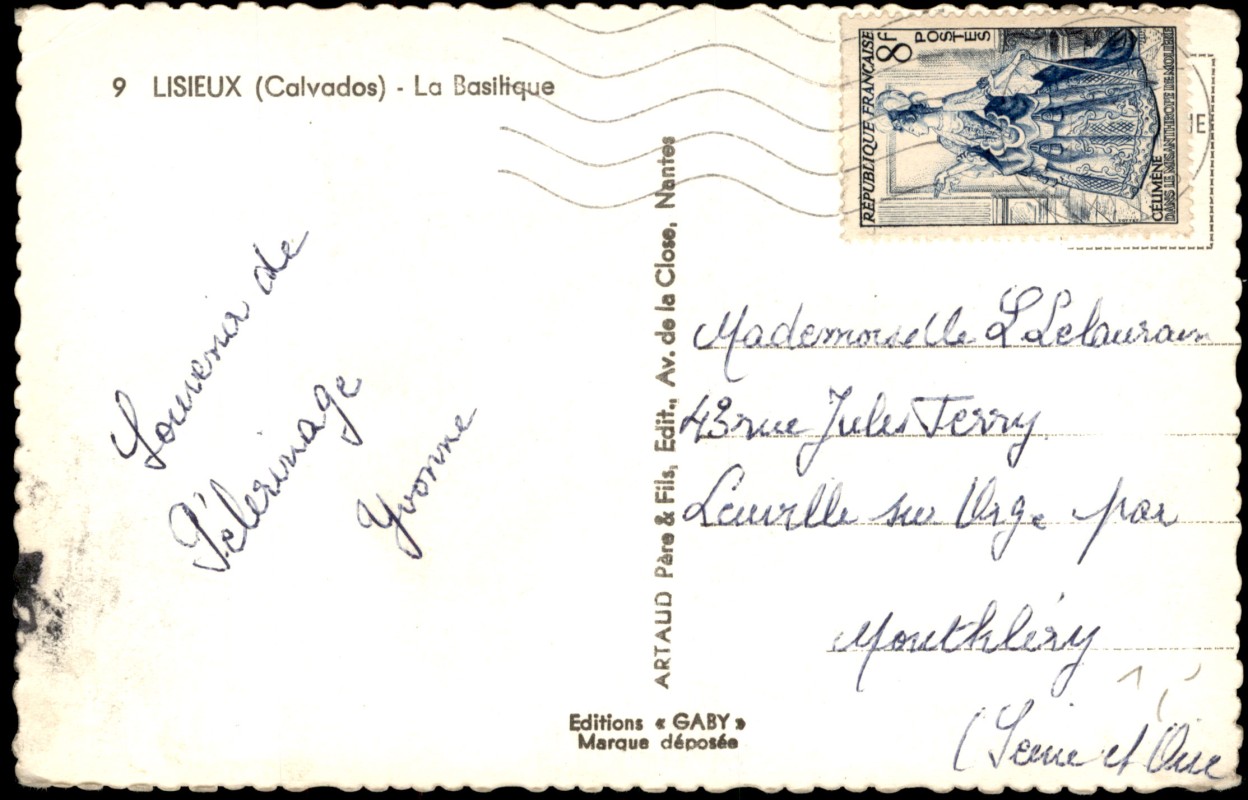 9 LISIEUX (Calvados) - La Basilique
Souvenir de
Pélerinage
Yvonne
ARTAUD Père & Fils, Edit., Av. de la Close, Nantes
Editions « GABY »
Marque déposée
RÉPUBLIQUE FRANÇAISE
8F
POSTES
CÉLIMÈNE
DANS LE MISANTHROPE DE MOLIÈRE
Mademoiselle L Lelaurain
43 rue Jules Ferry
Leuville sur Orge par
Montlhéry
(Seine et Oise